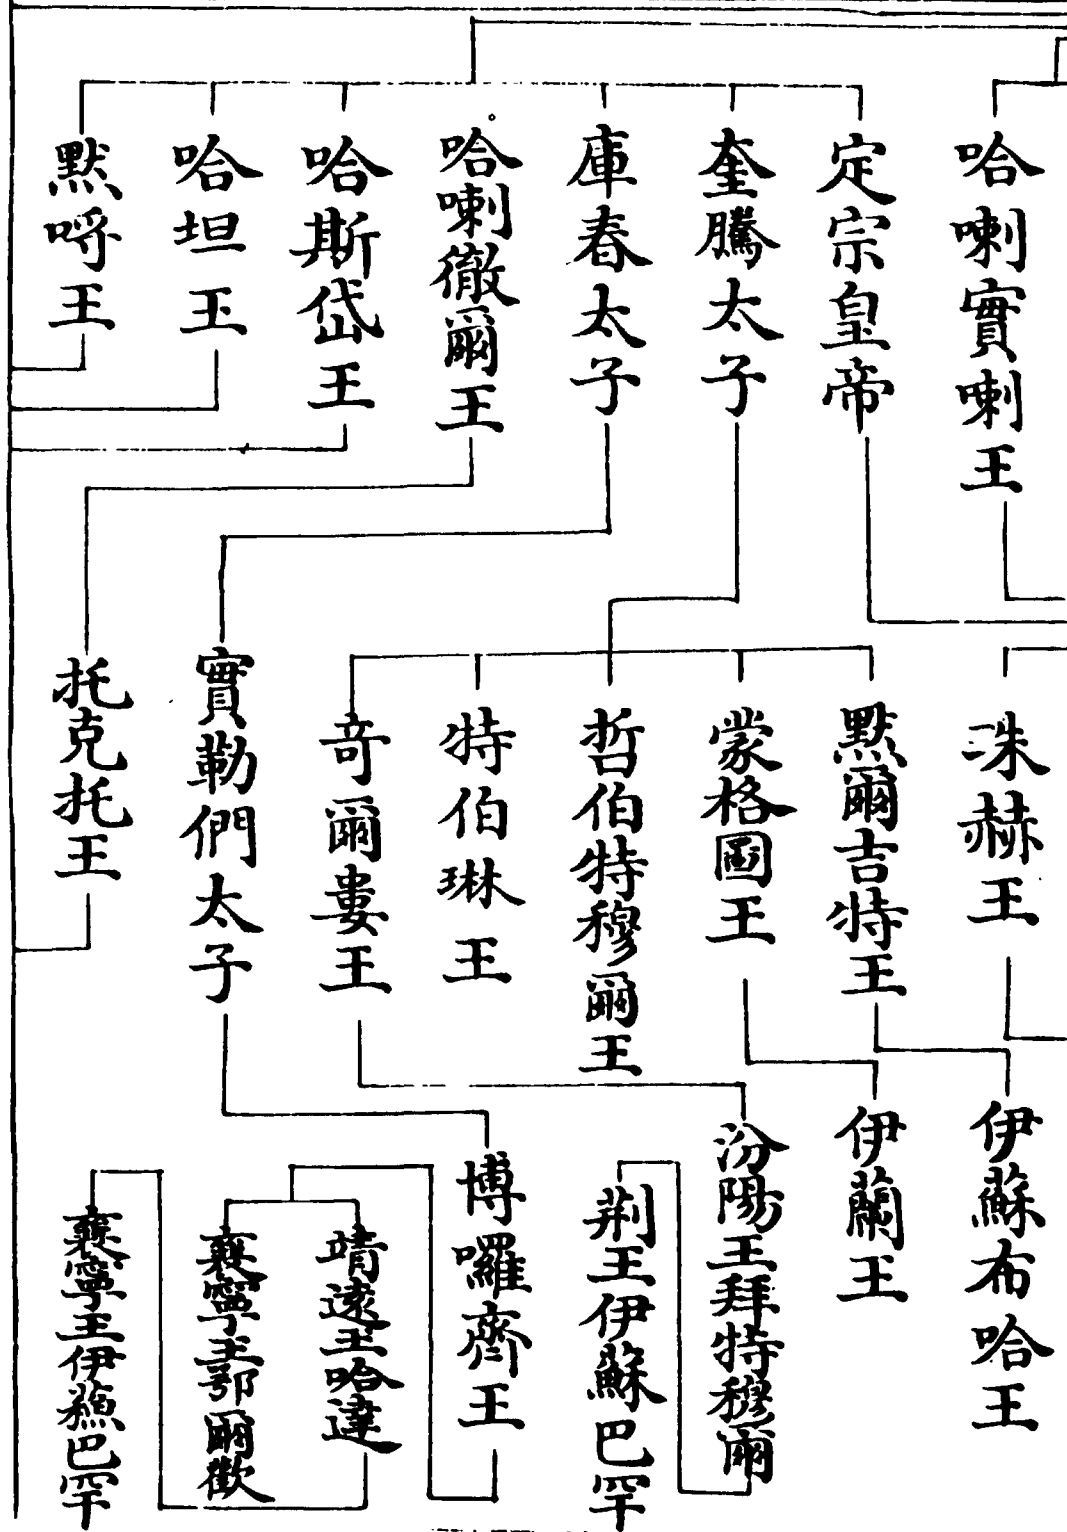 哈喇實喇王
定宗皇帝
奎騰太子
庫春太子
哈喇徹爾王
哈斯岱王
哈坦王
黙呼王
洙赫王
黙爾吉特王
蒙格圖王
哲伯特穆爾王
特伯琳王
竒爾婁王
實勒們太子
托克托王
伊蘇布哈王
伊蘭王
汾陽王拜特穆爾
荆王伊蘇巴罕
博囉齊王
靖逺王哈達
襄寧王鄂爾歡
襄寧王伊蘇巴罕